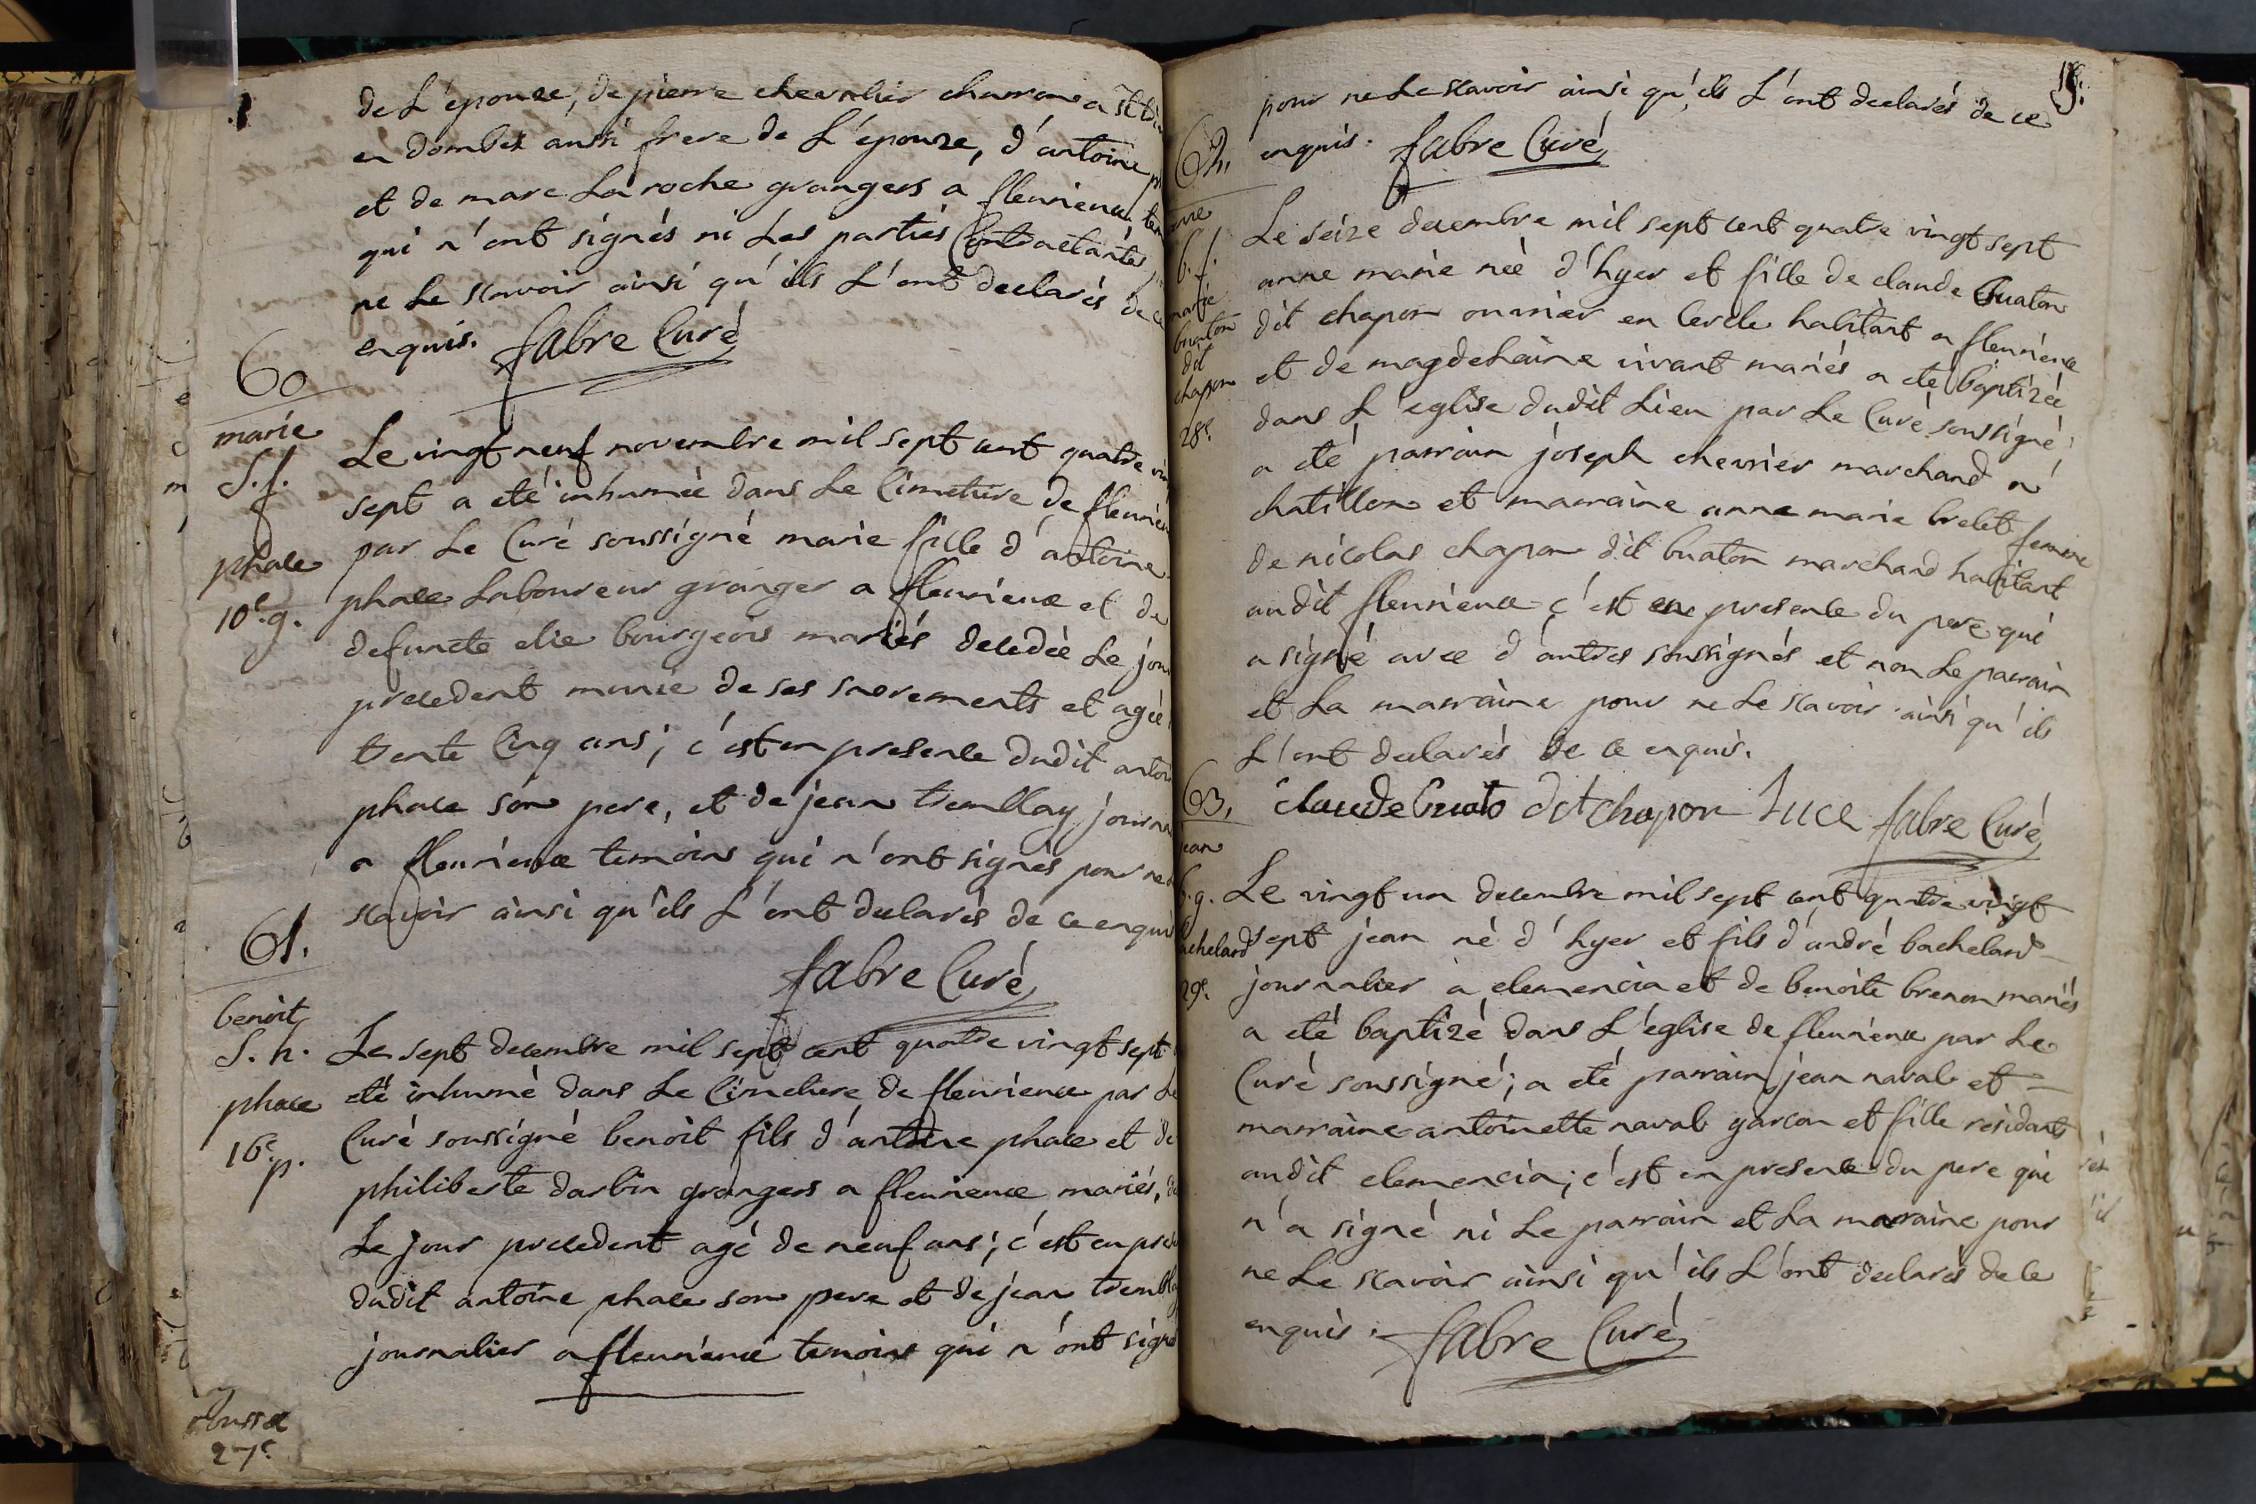 de L'epouze, de pierre chevalier charron a
en dombes aussi frere de L'epouze, d'antoine
et de marc La roche grangers a fleurieux
qui n'ont signés ni Les parties Contractantes
ne Le scavoir ainsi qu'ils L'ont declarés de ce
enquis. fabre Curé
60
marie
S. f.
phace
10e. g.
Le vingt neuf novembre mil sept cent quatre
sept a eté inhumée dans Le Cimetiere de fleurieux
par Le Curé soussigné marie fille d'antoine
phace Laboureur granger a fleurieux et de
defuncte elie bourgeois mariés decedée Le jour
precedent munie de ses sacrements et agée
trente Cinq ans; c'est en presence dudit antoine
phace son pere, et de jean tremblay
a fleurieux temoins qui n'ont signés pour ne
scavoir ainsi qu'ils L'ont declarés de ce enquis
fabre Curé
61.
benoit
S. h.
phace
16e. p.
Le sept decembre mil sept cent quatre vingt sept
eté inhumé dans Le Cimetiere de fleurieux par Le
Curé soussigné benoit fils d'antoine phace et de
philiberte darbin grangers a fleurieux mariés,
Le jour precedent agé de neuf ans; c'est en
dudit antoine phace son pere et de jean
journalier a fleurieux temoins qui n'ont signés
27e
pour ne Le scavoir ainsi qu'ils L'ont declarés de ce
enquis. fabre Curé
62.
b. f.
marie
buaton
dit
chapon
28e.
Le seize decembre mil sept cent quatre vingt sept
anne marie née d'hyer et fille de claude Buaton
dit chapon ouvrier en cercle habitant a fleurieux
et de magdelaine vivant mariés a eté baptizée
dans L'eglise dudit Lieu par Le Curé soussigné;
a eté parrain joseph chevrier marchand a
chatillon et marraine anne marie brelet femme
de nicolas chapon dit buaton marchand habitant
audit fleurieux c'est en presence du pere qui
a signé avec d'autres soussignés et non Le parrain
et La marraine pour ne Le scavoir ainsi qu'ils
L'ont declarés de ce enquis.
claude buato dit chapon Luce fabre Curé
63.
jean
b. g.
bachelard
29e.
Le vingt un decembre mil sept cent quatre vingt
sept jean né d'hyer et fils d'andré bachelard
journalier a clemencia et de benoite brenon mariés
a eté baptizé dans L'eglise de fleurieux par Le
Curé soussigné; a eté parrain jean naval et
marraine antoinette naval garcon et fille residants
audit clemencia; c'est en presence du pere qui
n'a signé ni Le parrain et La marraine pour
ne Le scavoir ainsi qu'ils L'ont declarés de ce
enquis. fabre Curé